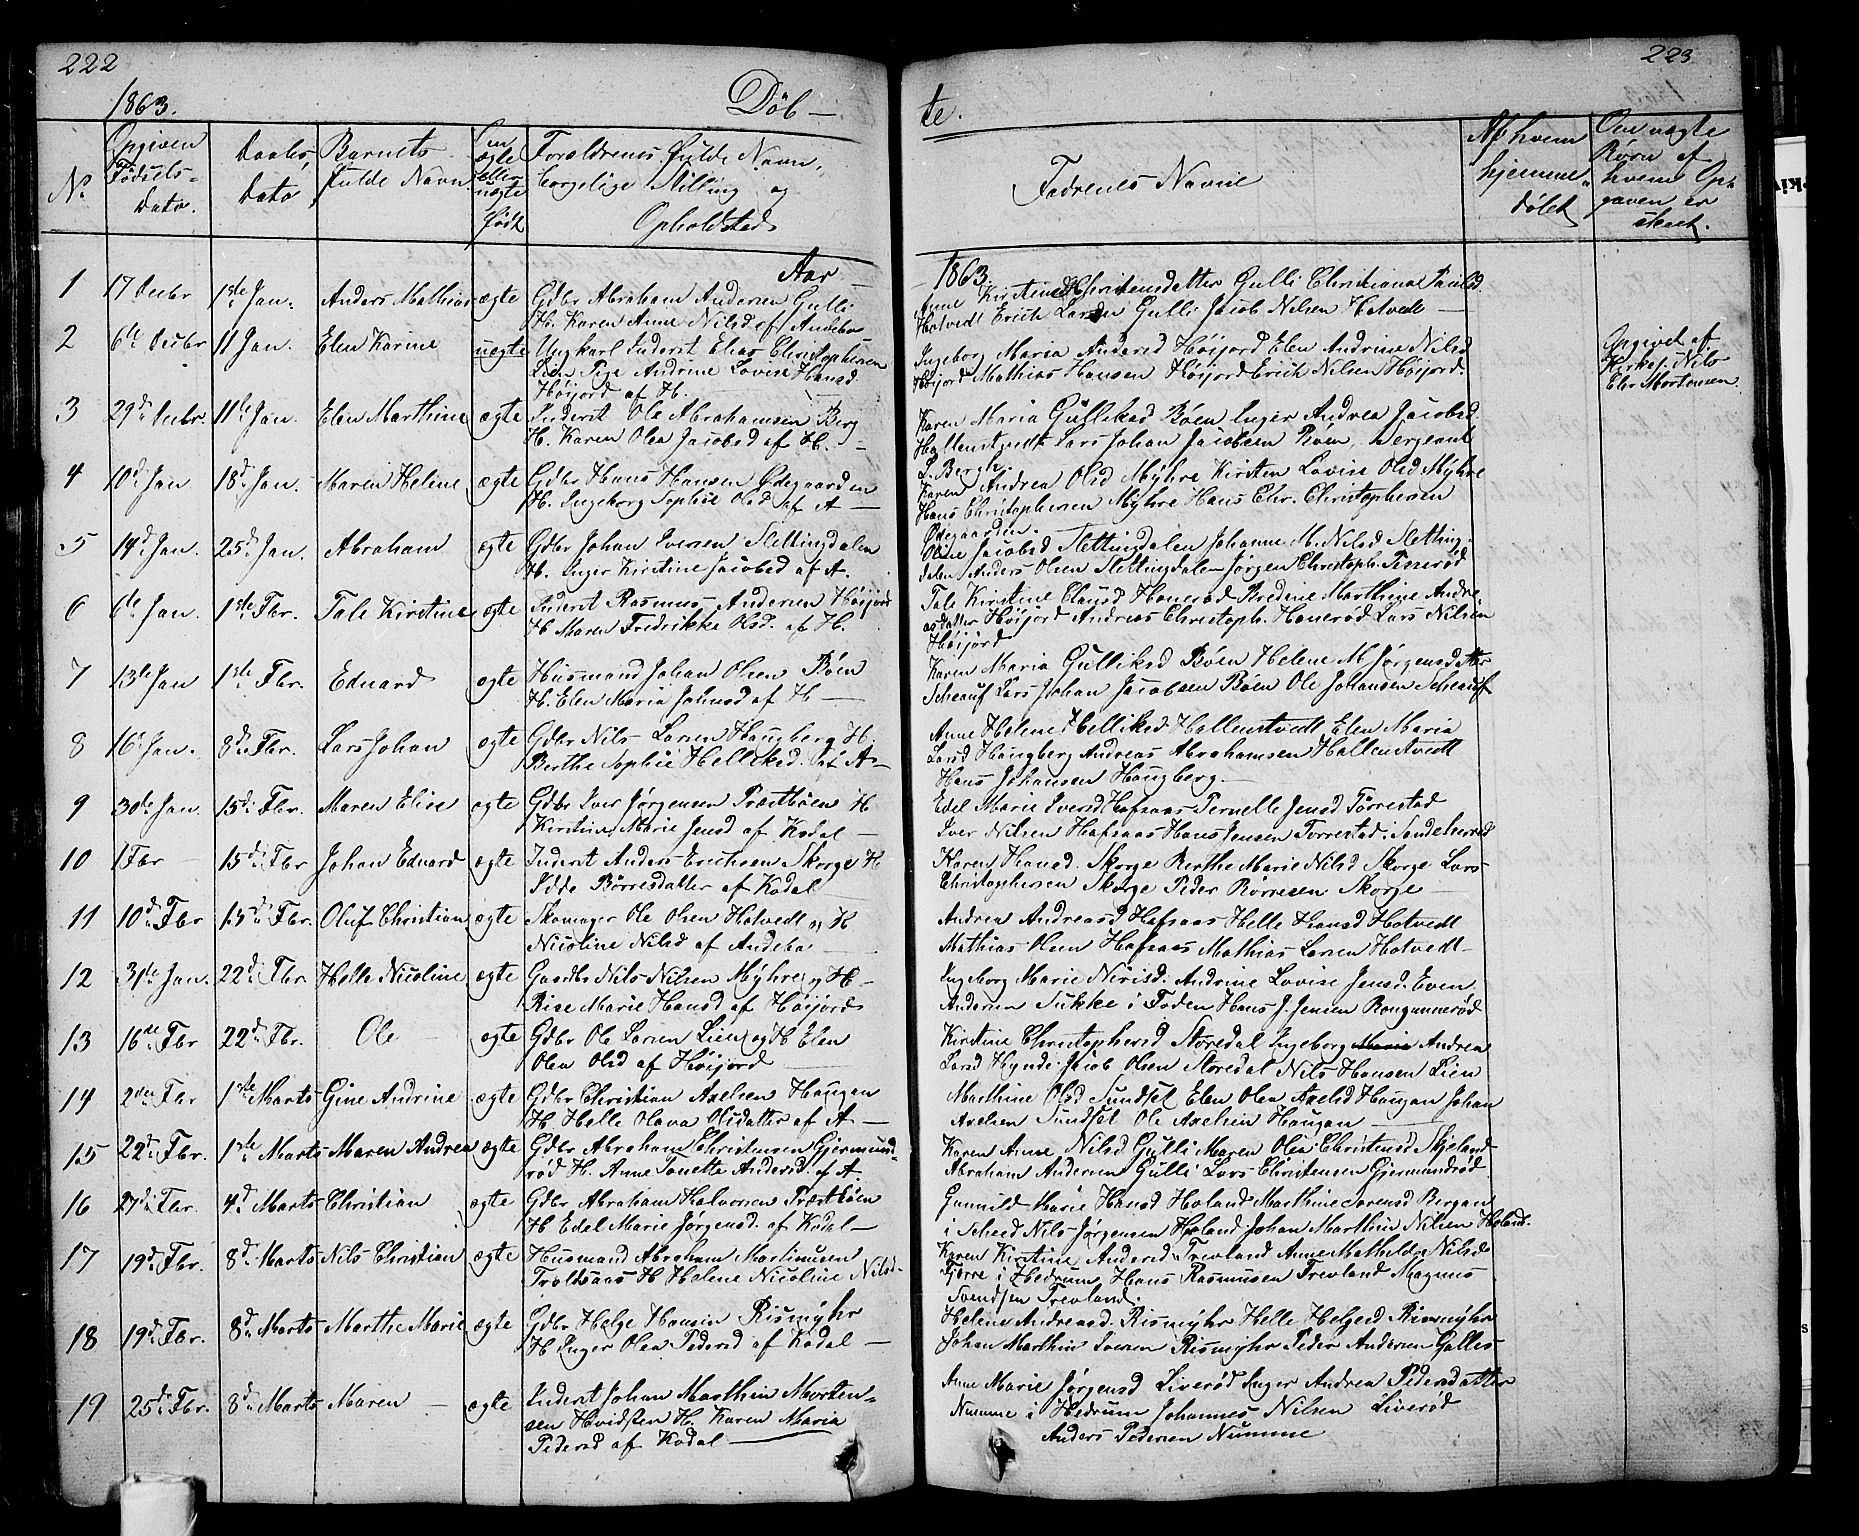 222
223
1863.
Döb-
te.
No
Opgiven
Fødsels-
Dato.
Daabs
Dato
Barnets
fulde Navn
Om
ægte
eller
uægte
født
Forældrenes Fulde Navn,
borgelige Stilling og
Opholdsted
Fadrenes Navne
Af hvem
hjemme-
døbt
Om uægte
Børn af
hvem Op-
gaven er
skeet.
Aar
1863.
1 17 Decbr 1ste Jan. Anders Mathias ægte Gdbr Abraham Andersen Gulli
H. Karen Anne Nilsd af Andebo
Anne Kirstine Christensdatter Gulli Christiana Paulsd
Hotvedt Erich Larsen Gulli Jacob Nilsen Hotvedt
2 6te Decbr 11 Jan. Elen Karine uægte Ungkarl Inderst Elias Christophersen
Lien Pige Andrine Lovise Hansd.
Høijord af H.
Ingeborg Maria Andersd Høijord Elen Andrine Nilsd
Høijord Mathias Hansen Høijord Erich Nilsen Høijord.
Opgivet af
Kirkes. Nils
Chr Mortensen
3 29de Decbr. 11te Jan. Elen Marthine ægte Inderst Ole Abrahamsen Berg
H. Karen Olea Jacobsd af H.
Karen Maria Gulliksd Bøen Inger Andrea Jacobsd
Hallenstvedt Lars Johan Jacobsen Bøen. Sergeant
L. Bergh.
4 10de Jan 18de Jan. Maren Heline ægte Gdbr Hans Hansen Ødegaarden
H. Ingeborg Sophie Olsd af A
Karen Andrea Olsd Mÿhre Kirsten Lovise Olsd Mÿhre
Hans Christophersen Mÿhre Hans Chr. Christophersen
Ødegaarden.
5 14de Jan. 25de Jan. Abraham ægte Gdbr Johan Iversen Slettingdalen
H. Inger Kirstine Jacobsd af A.
Oline Jacobsd Slettingdalen Johanne M. Nilsd Sletting-
dalen Anders Olsen Slettingdalen Jørgen Christoph.
6 6te Jan. 1ste Fbr. Tale Kirstine ægte Inderst Rasmus Andersen Høijord
H Maren Fredrikke Olsd. af H.
Tale Kirstine Clausd Hanerød Bredine Marthine Andre
asdatter Høijord Andreas Christoph. Hanerød Lars Nilsen
Høijord
7 13de Jan 1ste Fbr. Eduard ægte Husmand Johan Olsen Bøen
H. Elen Maria Johnsd af H
Karen Maria Gulliksd Bøen Helene M Jørgensdatter
Scheauf Lars Johan Jacobsen Bøen Ole Johansen Scheauf
8 16de Jan. 8de Fbr. Lars Johan ægte Gdbr Nils Larsen Haugberg H.
Berthe Sophie Helliksd. af A
Anne Helene Helliksd Hallenstvedt Elen Maria
Larsd Haugberg Andreas Abrahamsen Hallenstvedt
Hans Johansen Haugberg.
9 30de Jan. 15de Fbr. Maren Elise ægte Gdbr Iver Jørgensen Præstbøen H
Kirstine Marie Jensd af Kodal
Edel Marie Iversd Hafsaas Pernelle Jensd Torrestad
Iver Nilsen Hafsaas Hans Jensen Torrestad i Sandeherred
10 1 Fbr 15de Fbr Johan Eduard ægte Inderst Anders Erichsen Skorge H
Idde Børresdatter af Kodal
Karen Hansd. Skorge Berthe Marie Nilsd Skorge Lars
Christophersen Skorge Peder Børresen Skorge
11 10de Fbr 15de Fbr. Oluf Christian ægte Skomager Ole Olsen Hotvedt og H
Nicoline Nilsd af Andebo
Andrea Andreasd Hafsaas Helle Hansd Hotvedt
Mathias Olsen Hafsaas Mathias Larsen Hotvedt
12 31de Jan. 22de Fbr Helle Nicoline ægte Gaardbr Nils Nilsen Mÿhre og H
Rise Marie Hansd af Høijord
Ingeborg Marie Andrine Lovise Jensd. Even
Andersen Sukke i Foden Hans J. Jensen
13 16de Fbr 22de Fbr. Ole ægte Gdbr Ole Larsen Lien og H Elen
Olea Olsd af Høijord
Kirstine Christophersd Storedal Ingeborg Maria Andrea
Larsd Hynde Jacob Olsen Storedal Nils Hansen Lien
14 2den Fbr 1ste Marts Gine Andrine ægte Gdbr Christian Axelsen Haugan
H. Helle Olava Olsdatter af A
Marthine Olsd Sundset Elen Olea Axelsd Haugan Johan
Axelsen Sundset Ole Axelsen Haugan
15 22de Fbr. 1ste Marts Maren Andrea ægte Gdbr Abraham Christensen Gjermund-
rød H. Anne Tonette Andersd. af A.
Karen Anne Nilsd Gulli Maren Olea Christensd Skjeland
Abraham Andersen Gulli Lars Christensen Gjermundrød
16 27de Fbr. 4de Marts Christian ægte Gdbr Abraham Halvorsen Præstbøen
H Edel Marie Jørgensd. af Kodal
Gunnild Marie Hansd Holand Marthine Sørensd Bergan
i Scheed Nils Jørgensen Holand Johan Marthin Nilsen Holand.
17 19de Fbr. 8de Marts Nils Christian ægte Husmand Abraham Martinusen
Troldsaas H Helene Nicoline Nilsd.
Karen Kirstine Andersd Trevland Anne Mathilde Nilsd
Fjærre i Hedrum Hans Rasmusen Trevland Magnus
Svendsen Trevland.
18 19de Fbr. 8de Marts Marthe Marie ægte Gdbr Helge Hansen Rismÿhr
H Inger Olea Pedersd af Kodal
Helene Andreasd. Rismÿhr Helle Helgesd Rismÿhr
Johan Marthin Iversen Rismÿhr Peder Andersen Galles
19 25de Fbr. 8de Marts Maren ægte Inderst Johan Marthin Morten-
sen Hvidsten H. Karen Maria
Pedersd af Kodal
Anne Marie Jørgensd Liverød Inger Andrea Pedersdatter
Numme i Hedrum Johannes Nilsen Liverød
Anders Pedersen Numme